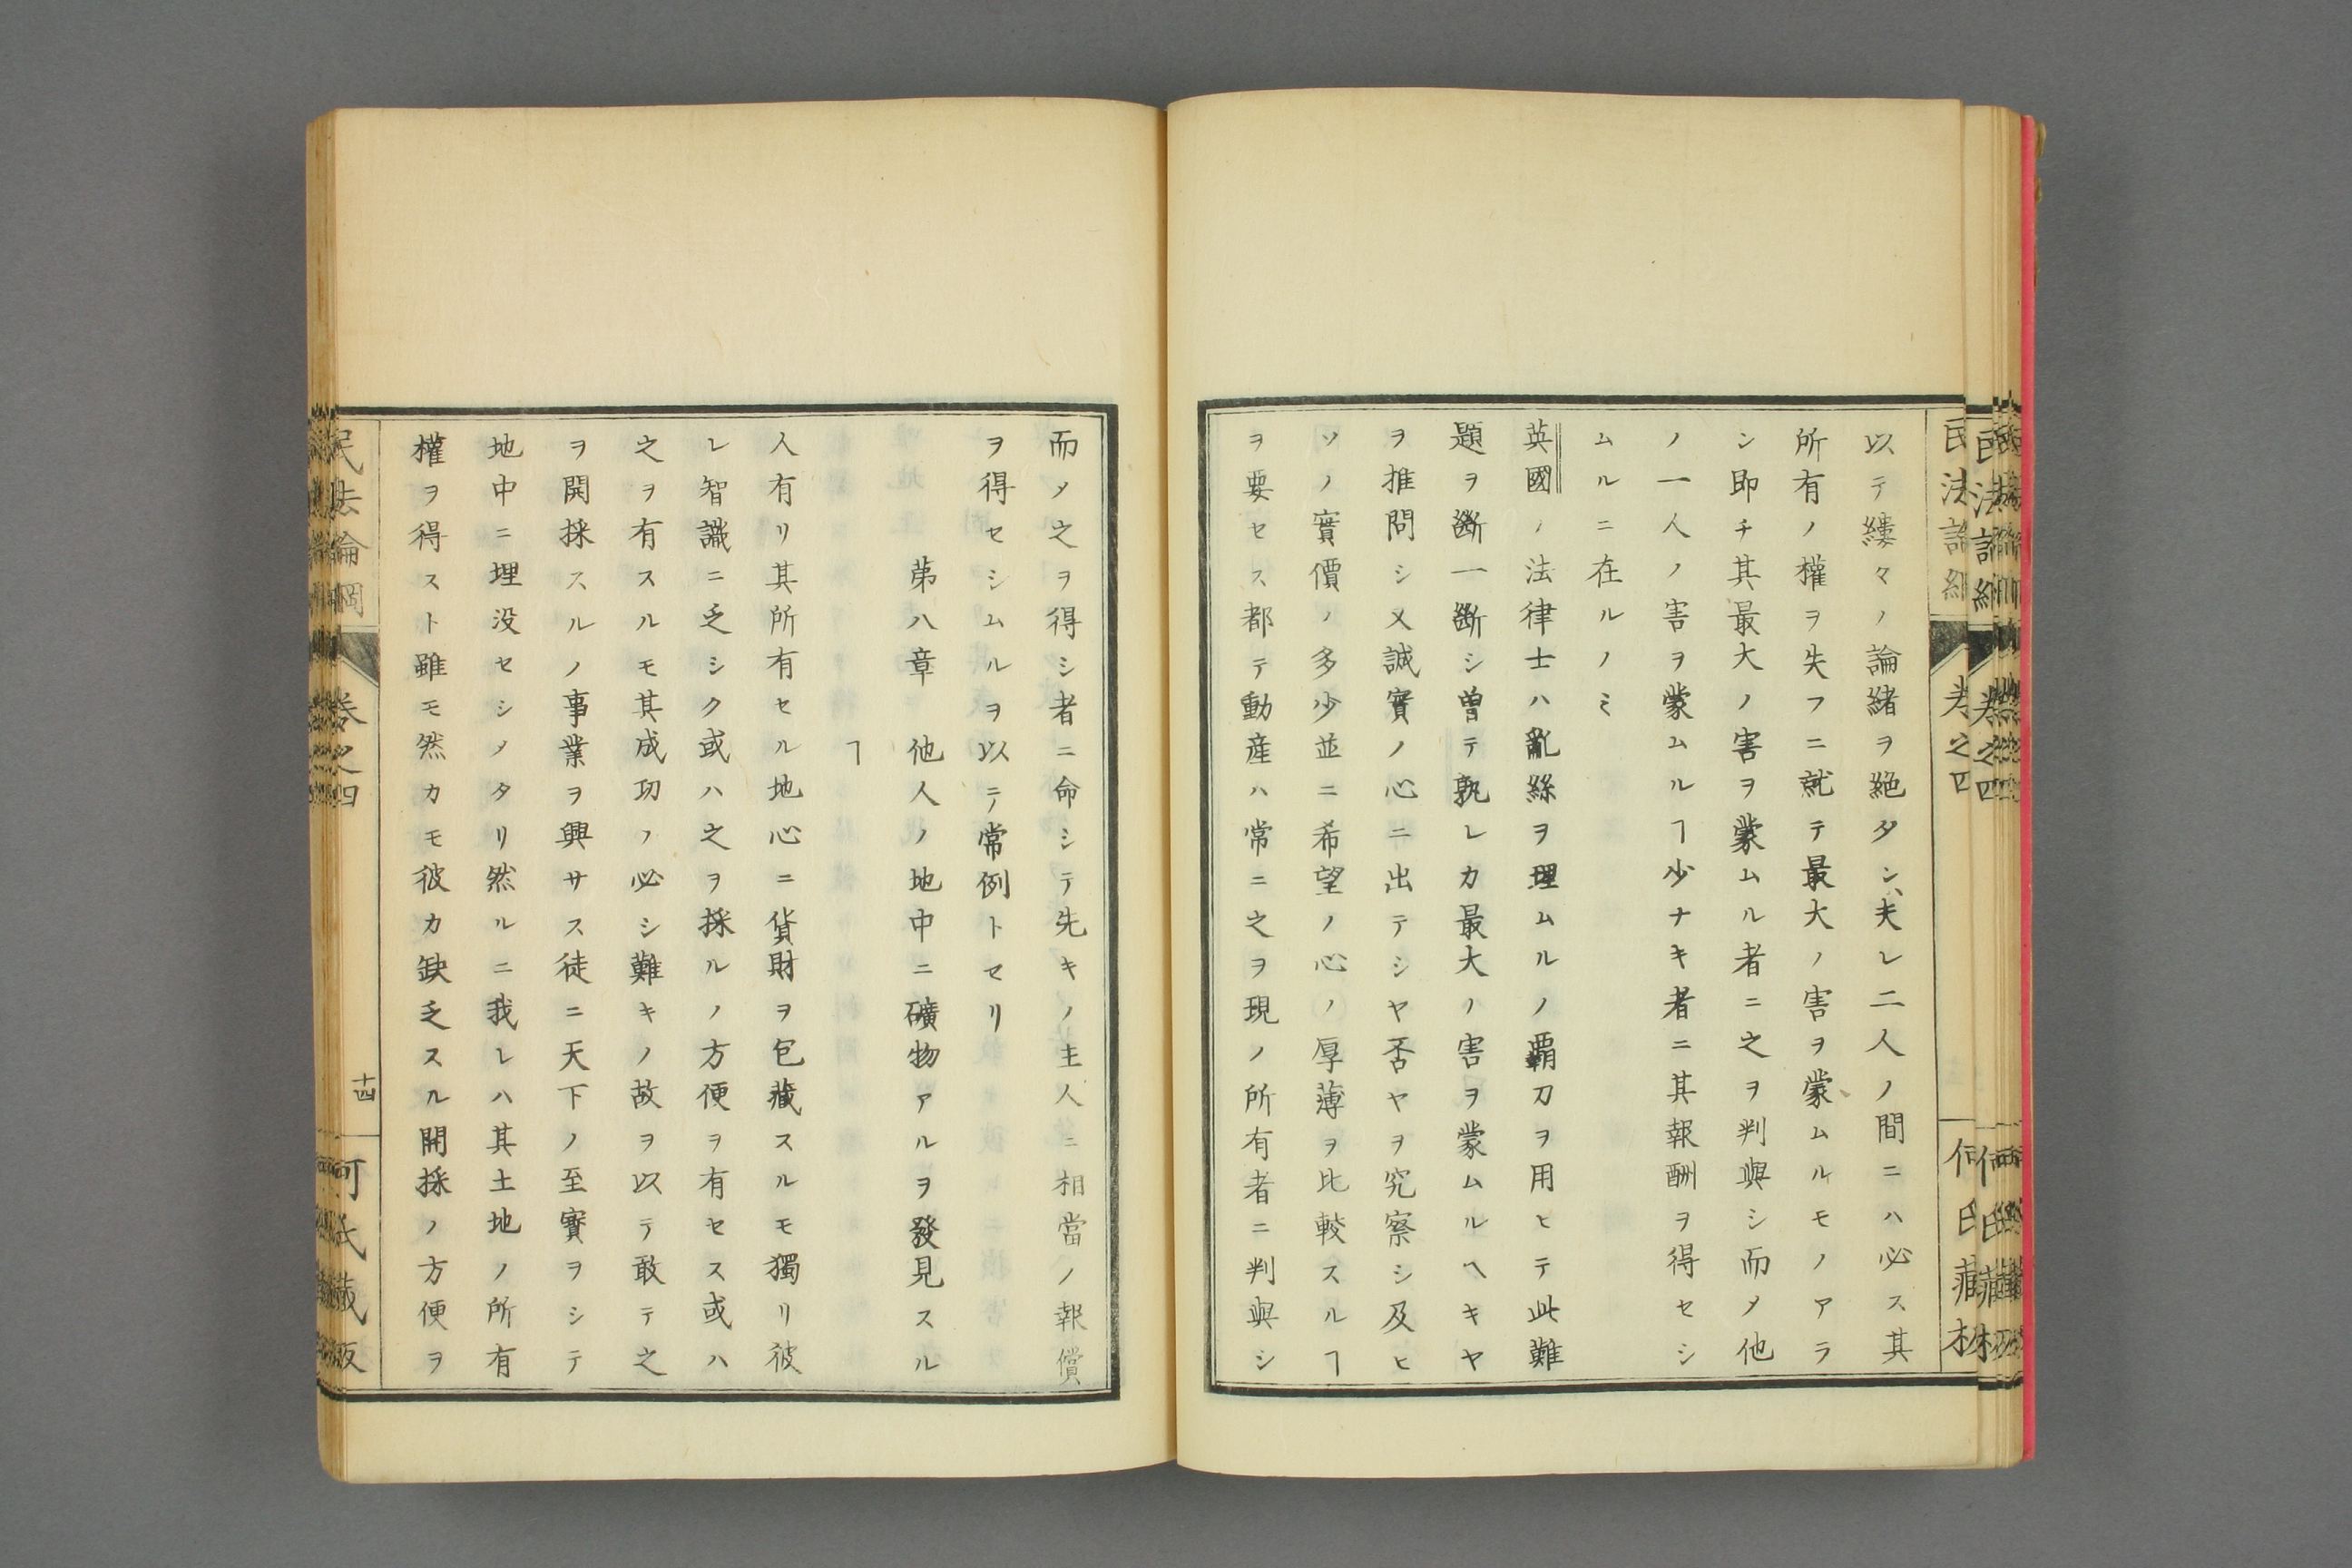 以テ縷々ノ論緒ヲ絶タン、夫レ二人ノ間ニハ必ス其
所有ノ權ヲ失フニ就テ最大ノ害ヲ蒙ムルモノアラ
ン即チ其最大ノ害ヲ蒙ムル者ニ之ヲ判與シ而メ他
ノ一人ノ害ヲ蒙ムルヿ少ナキ者ニ其報酬ヲ得セシ
ムルニ在ルノミ
英國ノ法律士ハ亂絲ヲ理ムルノ覇刀ヲ用ヒテ此難
題ヲ斷一斷シ曽テ孰レカ最大ノ害ヲ蒙ムルヘキヤ
ヲ推問シ又誠實ノ心ニ出テシヤ否ヤヲ究察シ及ヒ
ソノ實價ノ多少並ニ希望ノ心ノ厚薄ヲ比較スルヿ
ヲ要セス都テ動産ハ常ニ之ヲ現ノ所有者ニ判與シ
而メ之ヲ得シ者ニ命シテ先キノ主人ニ相當ノ報償
ヲ得セシムルヲ以テ常例トセリ
第八章 他人ノ地中ニ礦物アルヲ發見スル
ヿ
人有リ其所有セル地心ニ貨財ヲ包藏スルモ獨リ彼
レ智識ニ乏シク或ハ之ヲ採ルノ方便ヲ有セス或ハ
之ヲ有スルモ其成功ノ必シ難キノ故ヲ以テ敢テ之
ヲ開採スルノ事業ヲ興サス徒ニ天下ノ至寳ヲシテ
地中ニ埋没セシメタリ然ルニ我レハ其土地ノ所有
權ヲ得スト雖モ然カモ彼カ缺乏スル開採ノ方便ヲ
民法論綱 卷之四 十四 何氏藏版